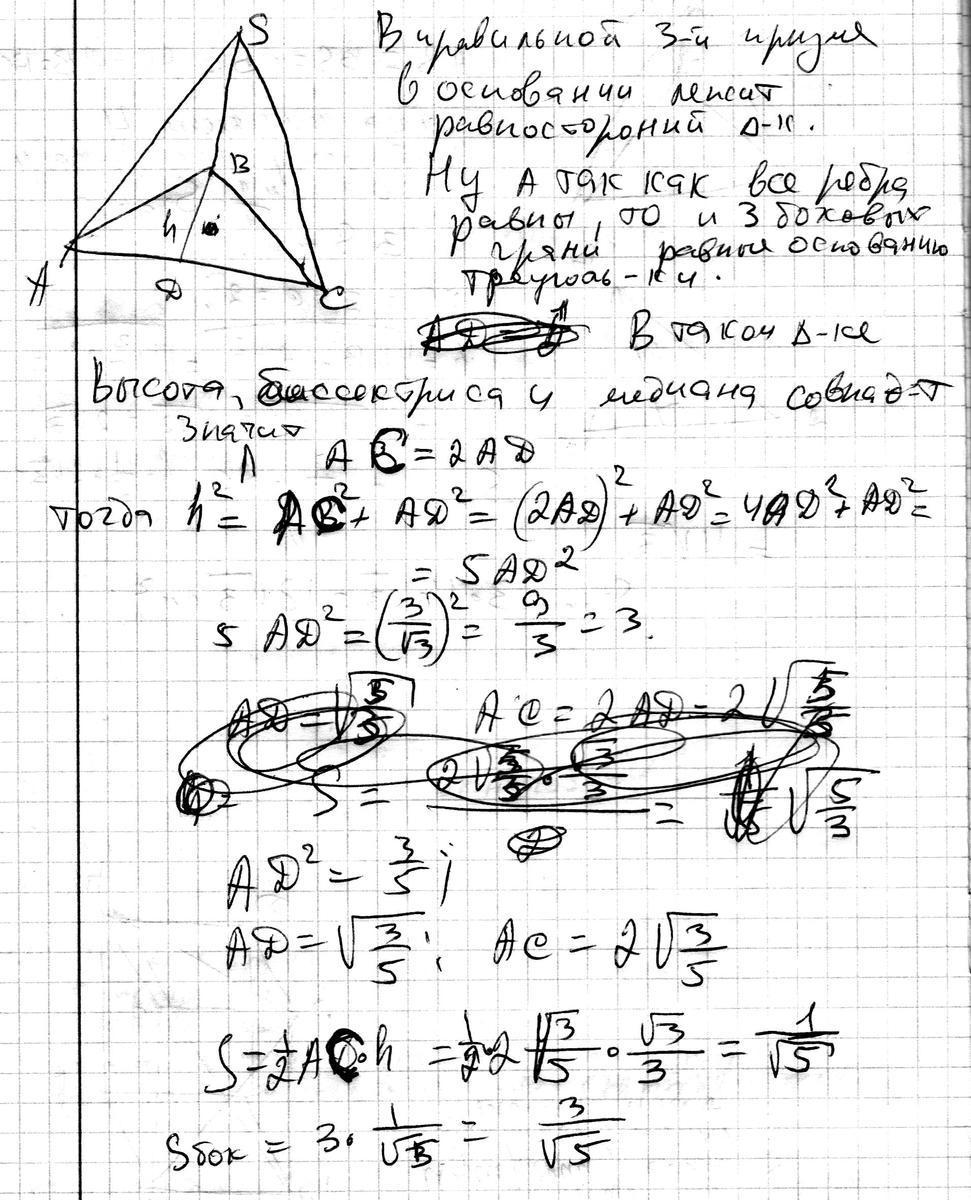 S
B
h
A
D
C
В правильной 3-й призме
в основании лежит
равностороний Δ-к.
Ну а так как все ребра
равны, то и 3 боковых
грани равны основанию
треуголь-ки.
В таком Δ-ке
Высота, биссектриса и медиана совпад-т
Значит
AC = 2AD
тогда h² = AC² + AD² = (2AD)² + AD² = 4AD² + AD² =
= 5AD²
5 AD² = (3/√3)² = 9/3 = 3.
AC = 2AD = 2
AD² = 3/5;
AD = √3/5; AC = 2√3/5
S = 1/2 AC·h = 1/2·2 √3/5 · √3/3 = 1/√5
Sбок = 3· 1/√5 = 3/√5